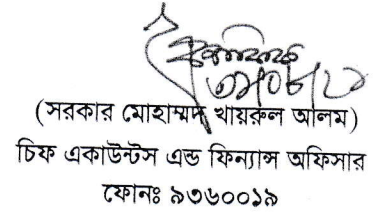 (সরকার মোহাম্মদ খায়রুল আলম)
চিফ একাউন্টস এন্ড ফিন্যান্স অফিসার
ফোনঃ ৯৩৬০০১৯